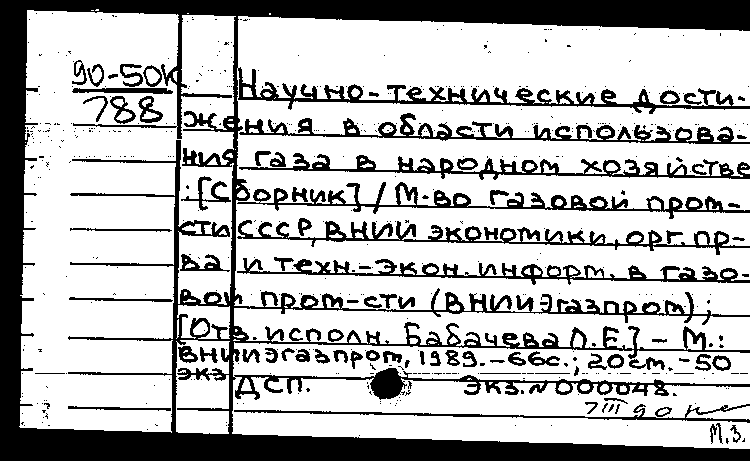 90-50К
788
Научно-технические дости-
жения в области использова-
ния газа в народном хозяйстве
: [Сборник] / М-во газовой пром-
сти СССР, ВНИИ экономики, орг. пр-
ва и техн.-экон. информ. в газо-
вой пром-сти (ВНИИЭгазпром);
[Отв. исполн. Бабачева Л.Е.] - М.:
ВНИИЭгазпром, 1989. - 66с.; 20см. - 50
экз
ДСП. Экз. № 000048.
7 III 90
М.З.